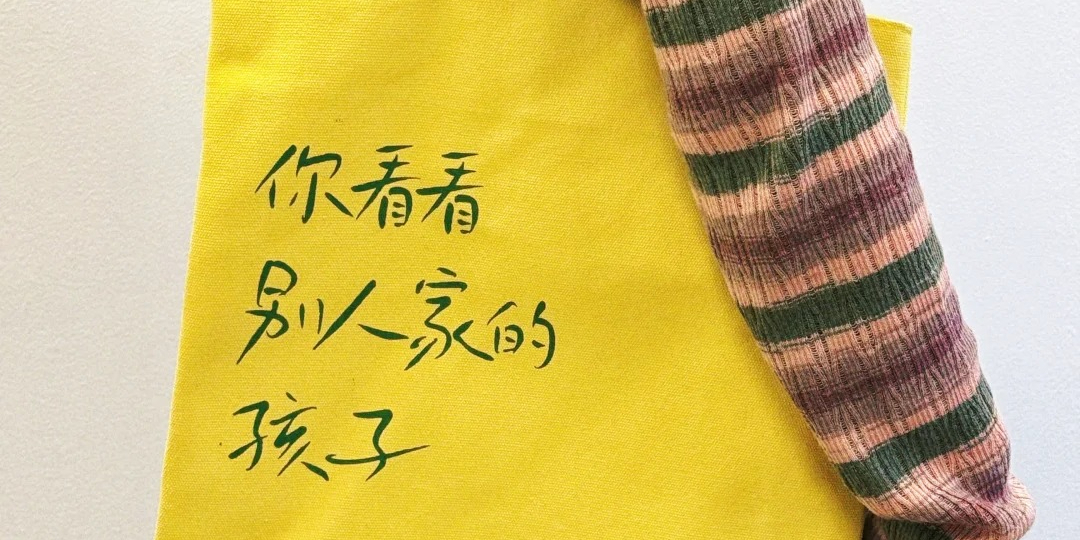 你看看
别人家的
孩子